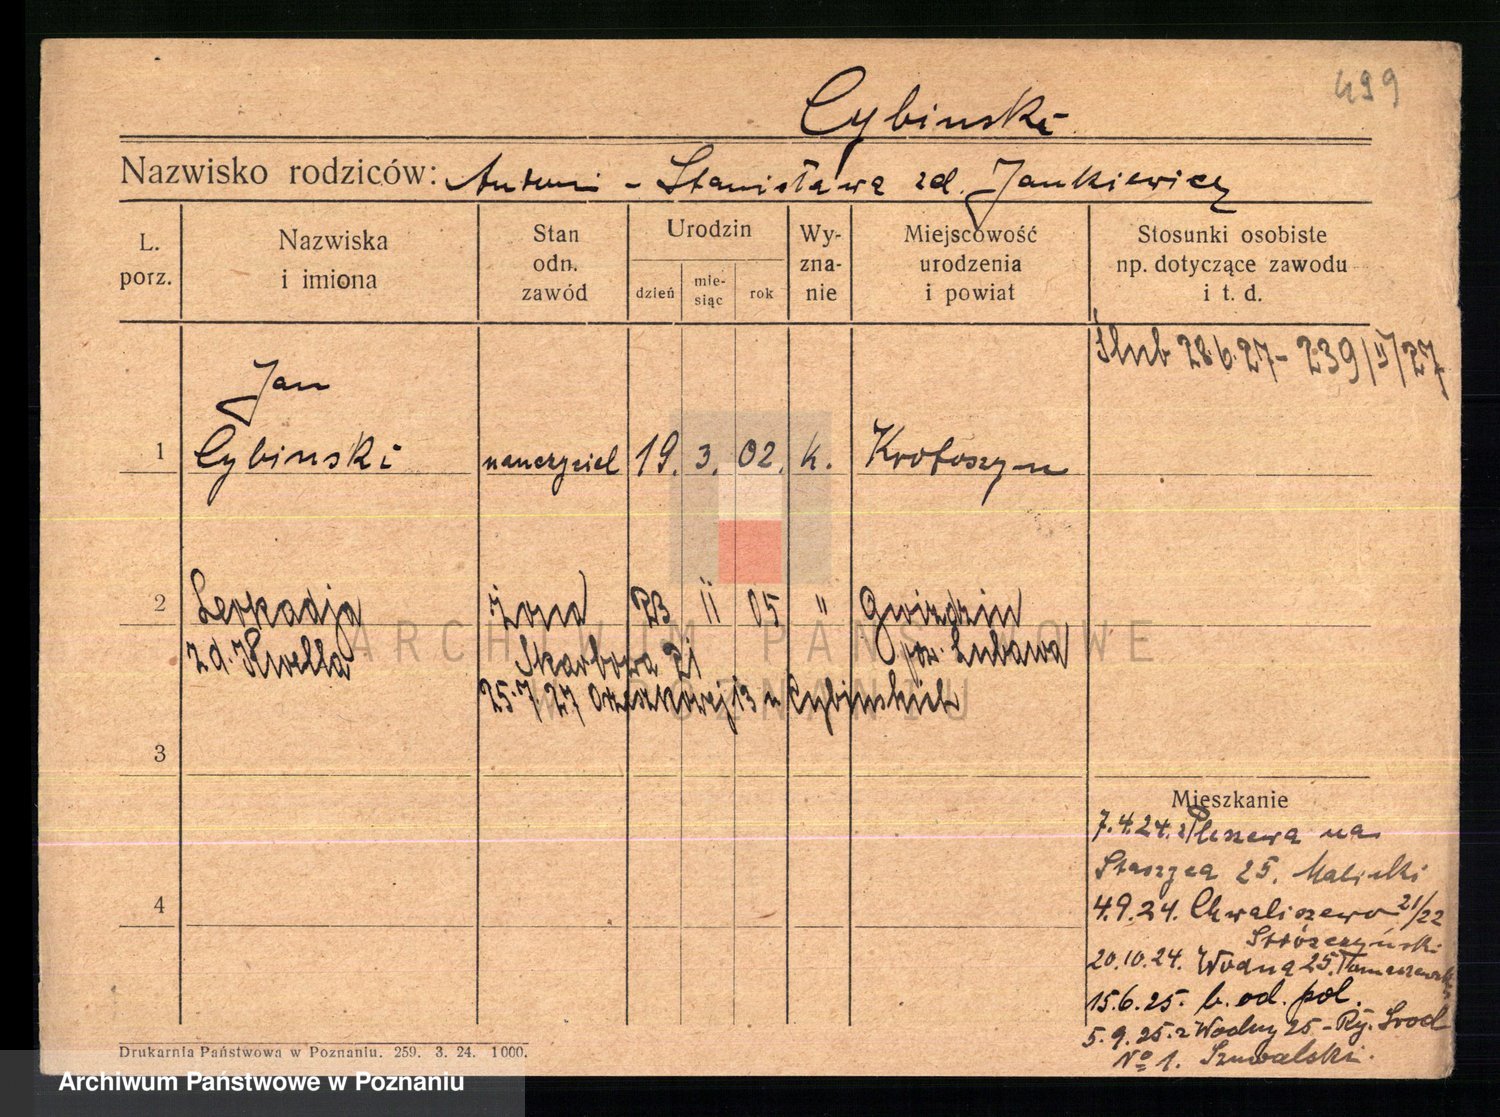 499
Cybinski
Nazwisko rodziców: Antoni - Stanisława zd. Jankiewicz
L. porz.
Nazwiska i imiona
Stan odn. zawód
Urodzin
dzień
mie-
siąc
rok
Wy-
zna-
nie
Miejscowość urodzenia i powiat
Stosunki osobiste np. dotyczące zawodu i t. d.
Ślub 28.6.27 - 239/II/27
Jan
1 Cybinski nauczyciel 19. 3. 02. k. Krotoszyn
2 Leokadja żona 23 II 05 " Gwiździn
zd. Kwella Skarbowa 21 pow. Lubawa
25.7.27 Orzeszkowej 13 u Cybinskich
3
4
Mieszkanie
7.4.24. z Pleszewa na
Staszyca 25. Matelski
4.9.24. Chwaliszewo 21/22
Strózczyński
20.10.24. Wodna 25. Tomaszewski
15.6.25. b. od. pol.
5.9.25. z Wodny 25 - Ry. Srod
No 1. Szuwalski.
Drukarnia Państwowa w Poznaniu. 259. 3. 24. 1000.
ARCHIWUM PAŃSTWOWE
W POZNANIU
Archiwum Państwowe w Poznaniu